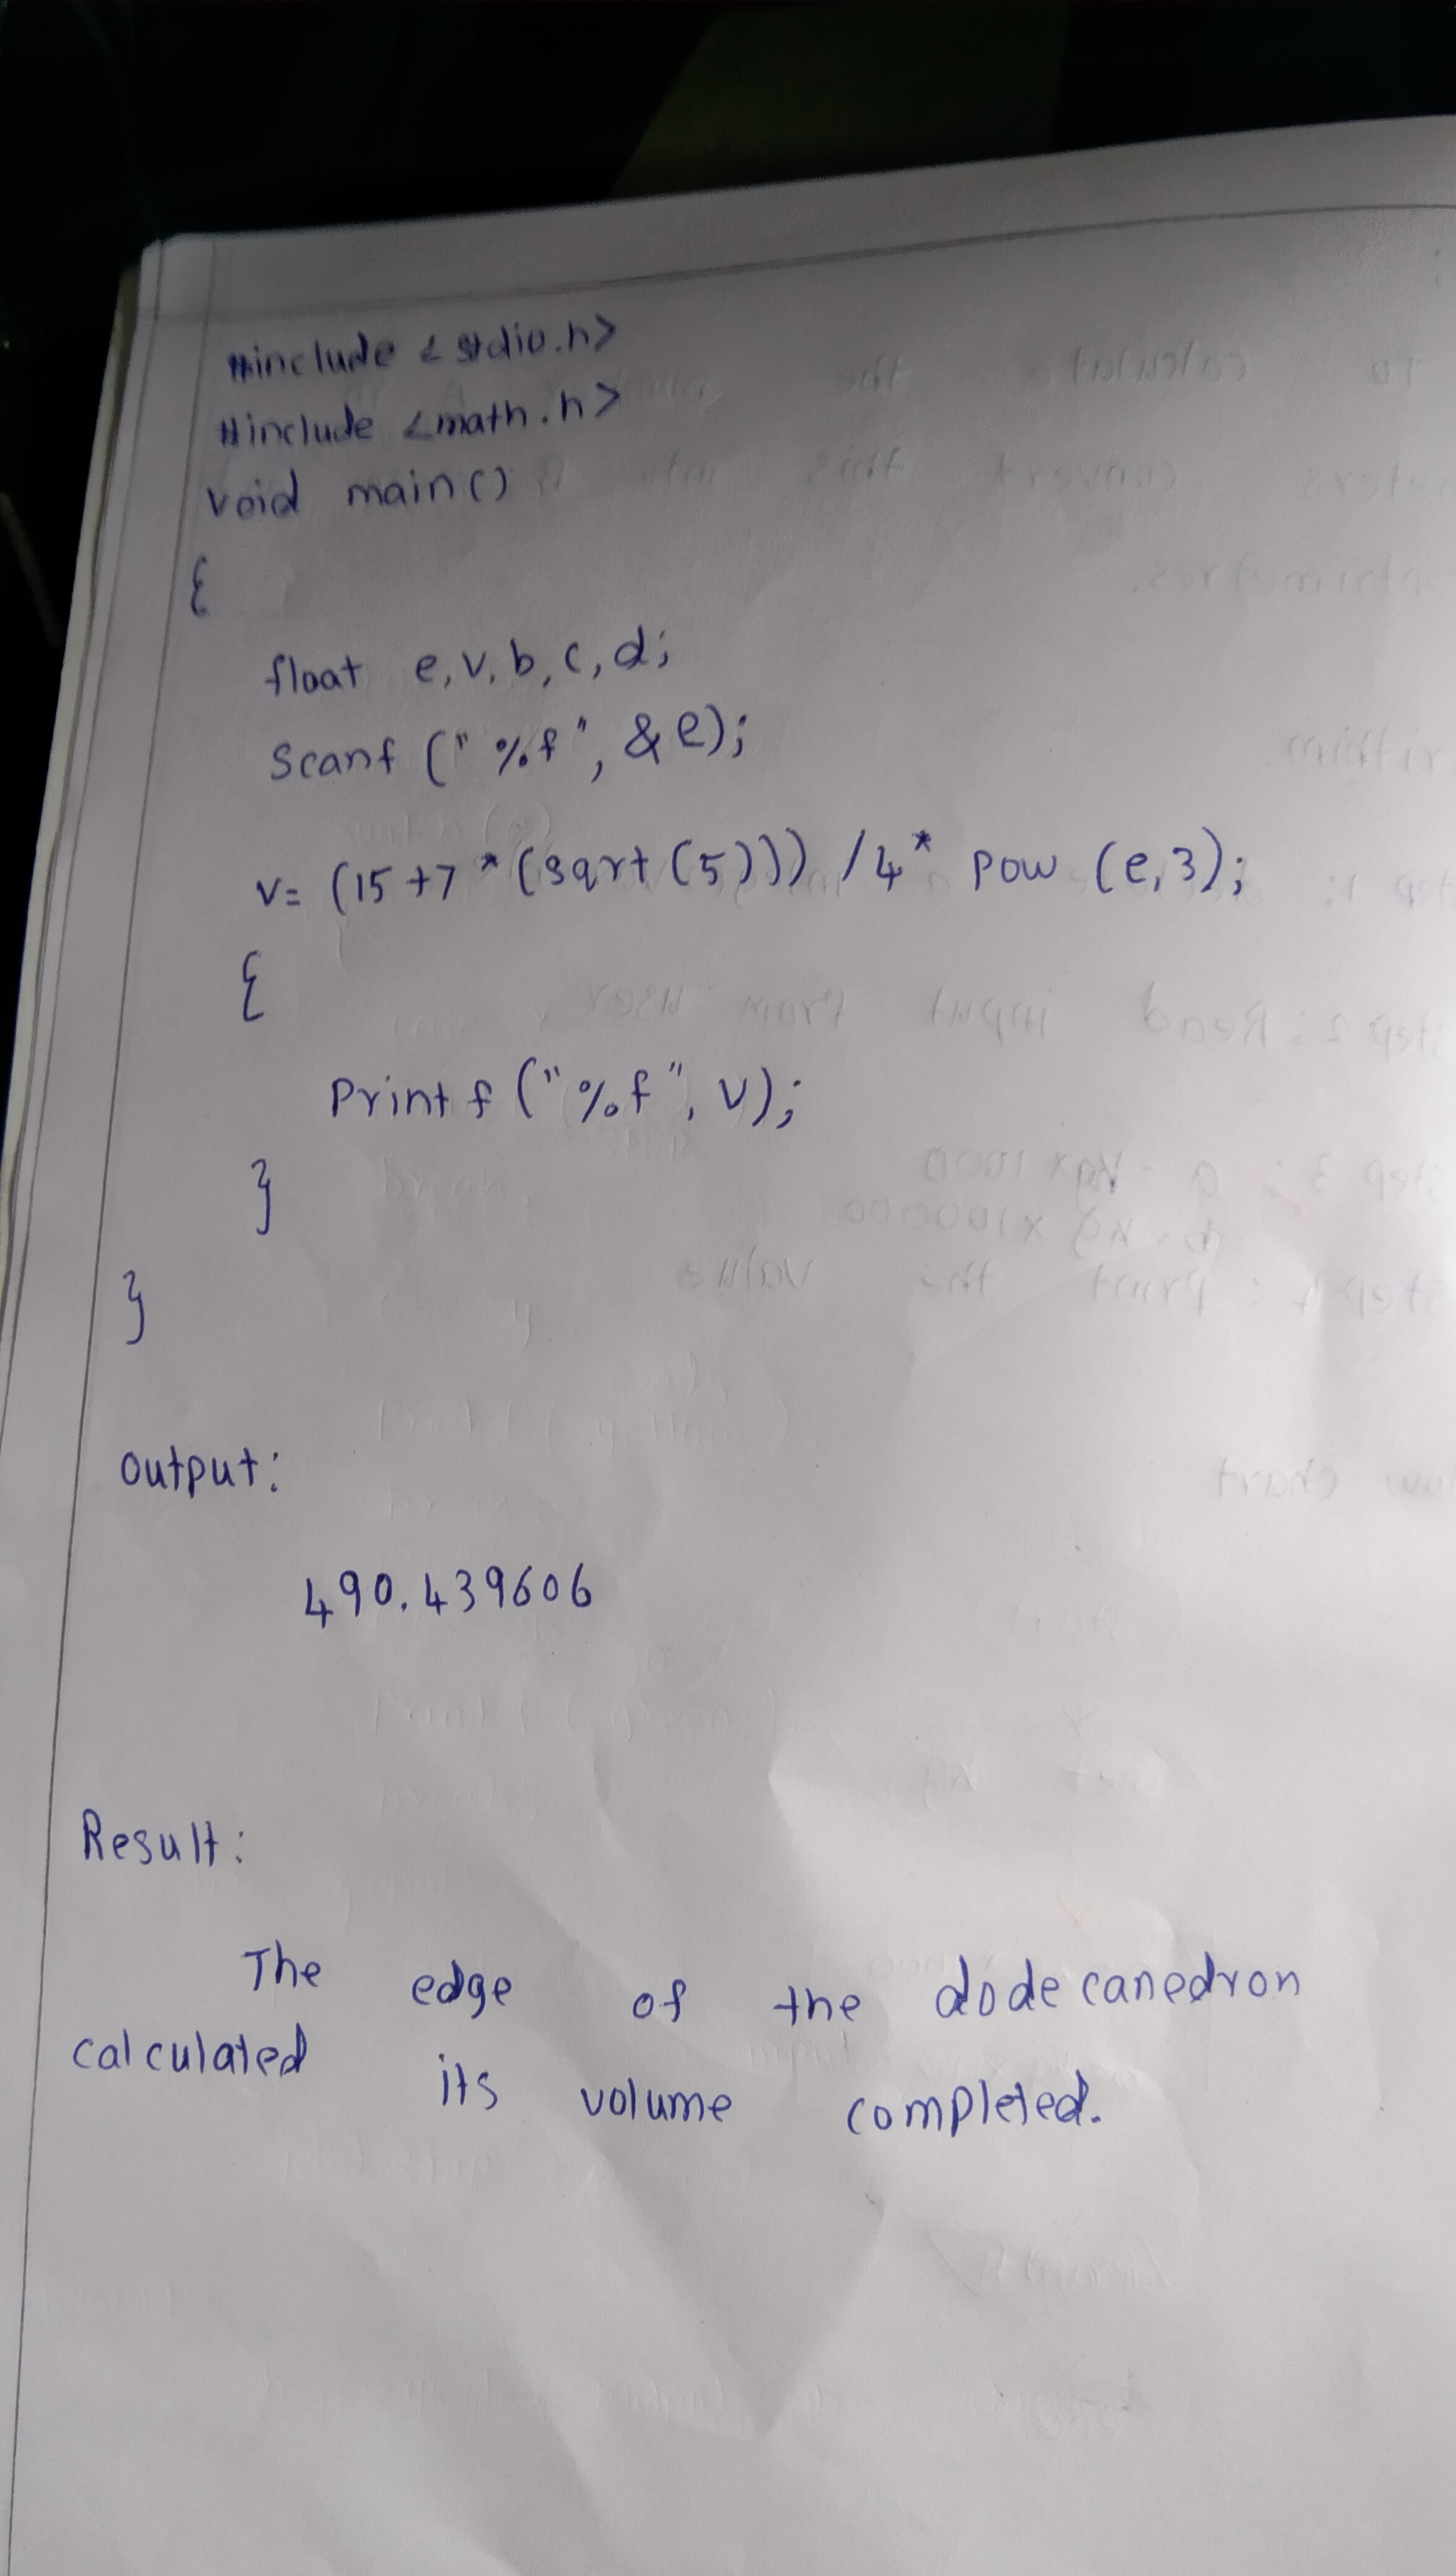 #include <stdio.h>
#include <math.h>
void main()
{
float e, v, b, c, d;
Scanf ("%f", &e);
v= (15+7*(sqrt(5)))/4* pow (e,3);
{
Printf ("%f", v);
}
}
Output:
490.439606
Result:
The edge of the dodecanedron
calculated its volume completed.